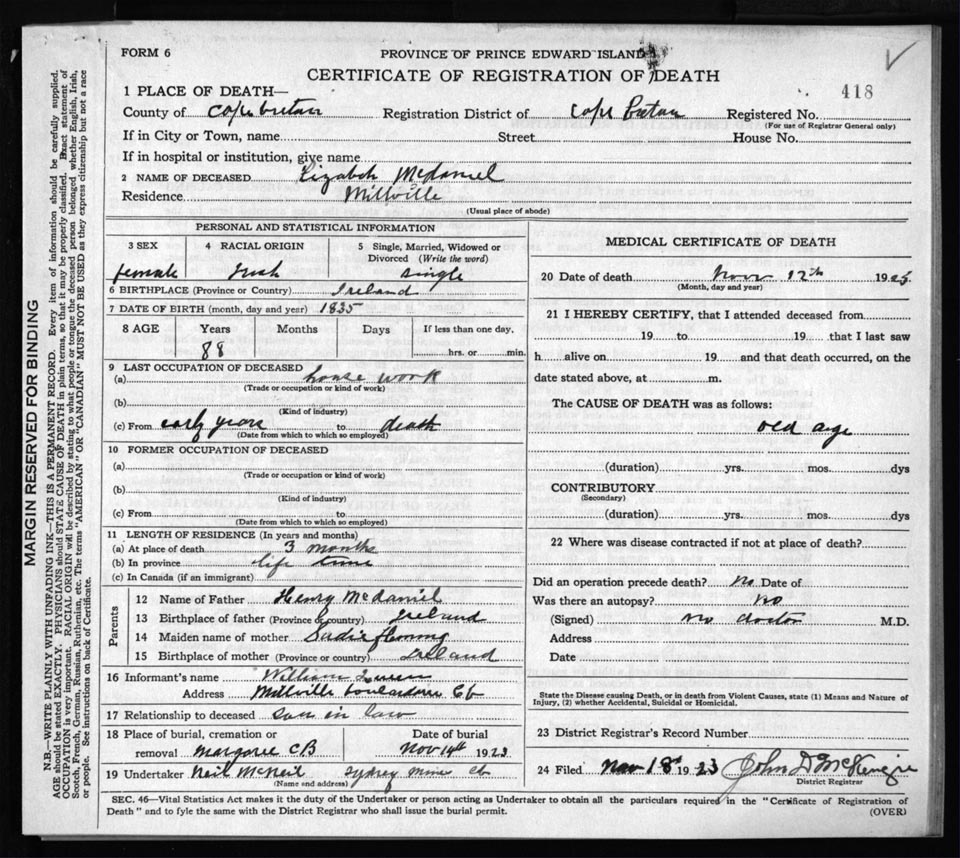 FORM 6
PROVINCE OF PRINCE EDWARD ISLAND
CERTIFICATE OF REGISTRATION OF DEATH
1 PLACE OF DEATH—
418
County of Cape Breton Registration District of Cape Breton Registered No.
(For use of Registrar General only)
If in City or Town, name Street House No.
If in hospital or institution, give name
2 NAME OF DECEASED Lizabeth McDaniel
Residence Millville
(Usual place of abode)
PERSONAL AND STATISTICAL INFORMATION
3 SEX 4 RACIAL ORIGIN 5 Single, Married, Widowed or Divorced (Write the word)
female Irish single
6 BIRTHPLACE (Province or Country) Ireland
7 DATE OF BIRTH (month, day and year) 1835
8 AGE Years Months Days If less than one day.
88 hrs. or min.
9 LAST OCCUPATION OF DECEASED
(a) house work
(Trade or occupation or kind of work)
(b)
(Kind of industry)
(c) From early years to death
(Date from which to which so employed)
10 FORMER OCCUPATION OF DECEASED
(a)
(Trade or occupation or kind of work)
(b)
(Kind of industry)
(c) From to
(Date from which to which so employed)
11 LENGTH OF RESIDENCE (In years and months)
(a) At place of death 3 months
(b) In province life time
(c) In Canada (if an immigrant)
Parents
12 Name of Father Henry McDaniel
13 Birthplace of father (Province or country) Ireland
14 Maiden name of mother Sadie Fleming
15 Birthplace of mother (Province or country) Ireland
16 Informant's name William
Address Millville Boulardarie CB
17 Relationship to deceased son in law
18 Place of burial, cremation or Date of burial
removal Margaree C.B Nov 14th 1923
19 Undertaker Neil McNeil Sydney Mines CB
(Name and address)
MEDICAL CERTIFICATE OF DEATH
20 Date of death Nov 12th 19
(Month, day and year)
21 I HEREBY CERTIFY, that I attended deceased from
19 to 19 that I last saw
h alive on 19 and that death occurred, on the
date stated above, at m.
The CAUSE OF DEATH was as follows:
old age
(duration) yrs. mos. dys
CONTRIBUTORY
(Secondary)
(duration) yrs. mos. dys
22 Where was disease contracted if not at place of death?
Did an operation precede death? No Date of
Was there an autopsy? no
(Signed) no doctor M.D.
Address
Date
State the Disease causing Death, or in death from Violent Causes, state (1) Means and Nature of
Injury, (2) whether Accidental, Suicidal or Homicidal.
23 District Registrar's Record Number
24 Filed Nov 18th 1923 John D McKenzie
District Registrar
SEC. 46—Vital Statistics Act makes it the duty of the Undertaker or person acting as Undertaker to obtain all the particulars required in the "Certificate of Registration of
Death" and to fyle the same with the District Registrar who shall issue the burial permit. (OVER)
MARGIN RESERVED FOR BINDING
N.B.—WRITE PLAINLY WITH UNFADING INK—THIS IS A PERMANENT RECORD. Every item of information should be carefully supplied.
AGE should be stated EXACTLY. PHYSICIANS should STATE CAUSE OF DEATH in plain terms, so that it may be properly classified. Exact statement of
OCCUPATION is very important. RACIAL ORIGIN will be described by stating to what people or tongue the deceased person belonged, whether English, Irish,
Scotch, French, German, Russian, Ruthenian, etc. The terms "AMERICAN" OR "CANADIAN" MUST NOT BE USED as they express citizenship but not a race
or people. See instructions on back of Certificate.